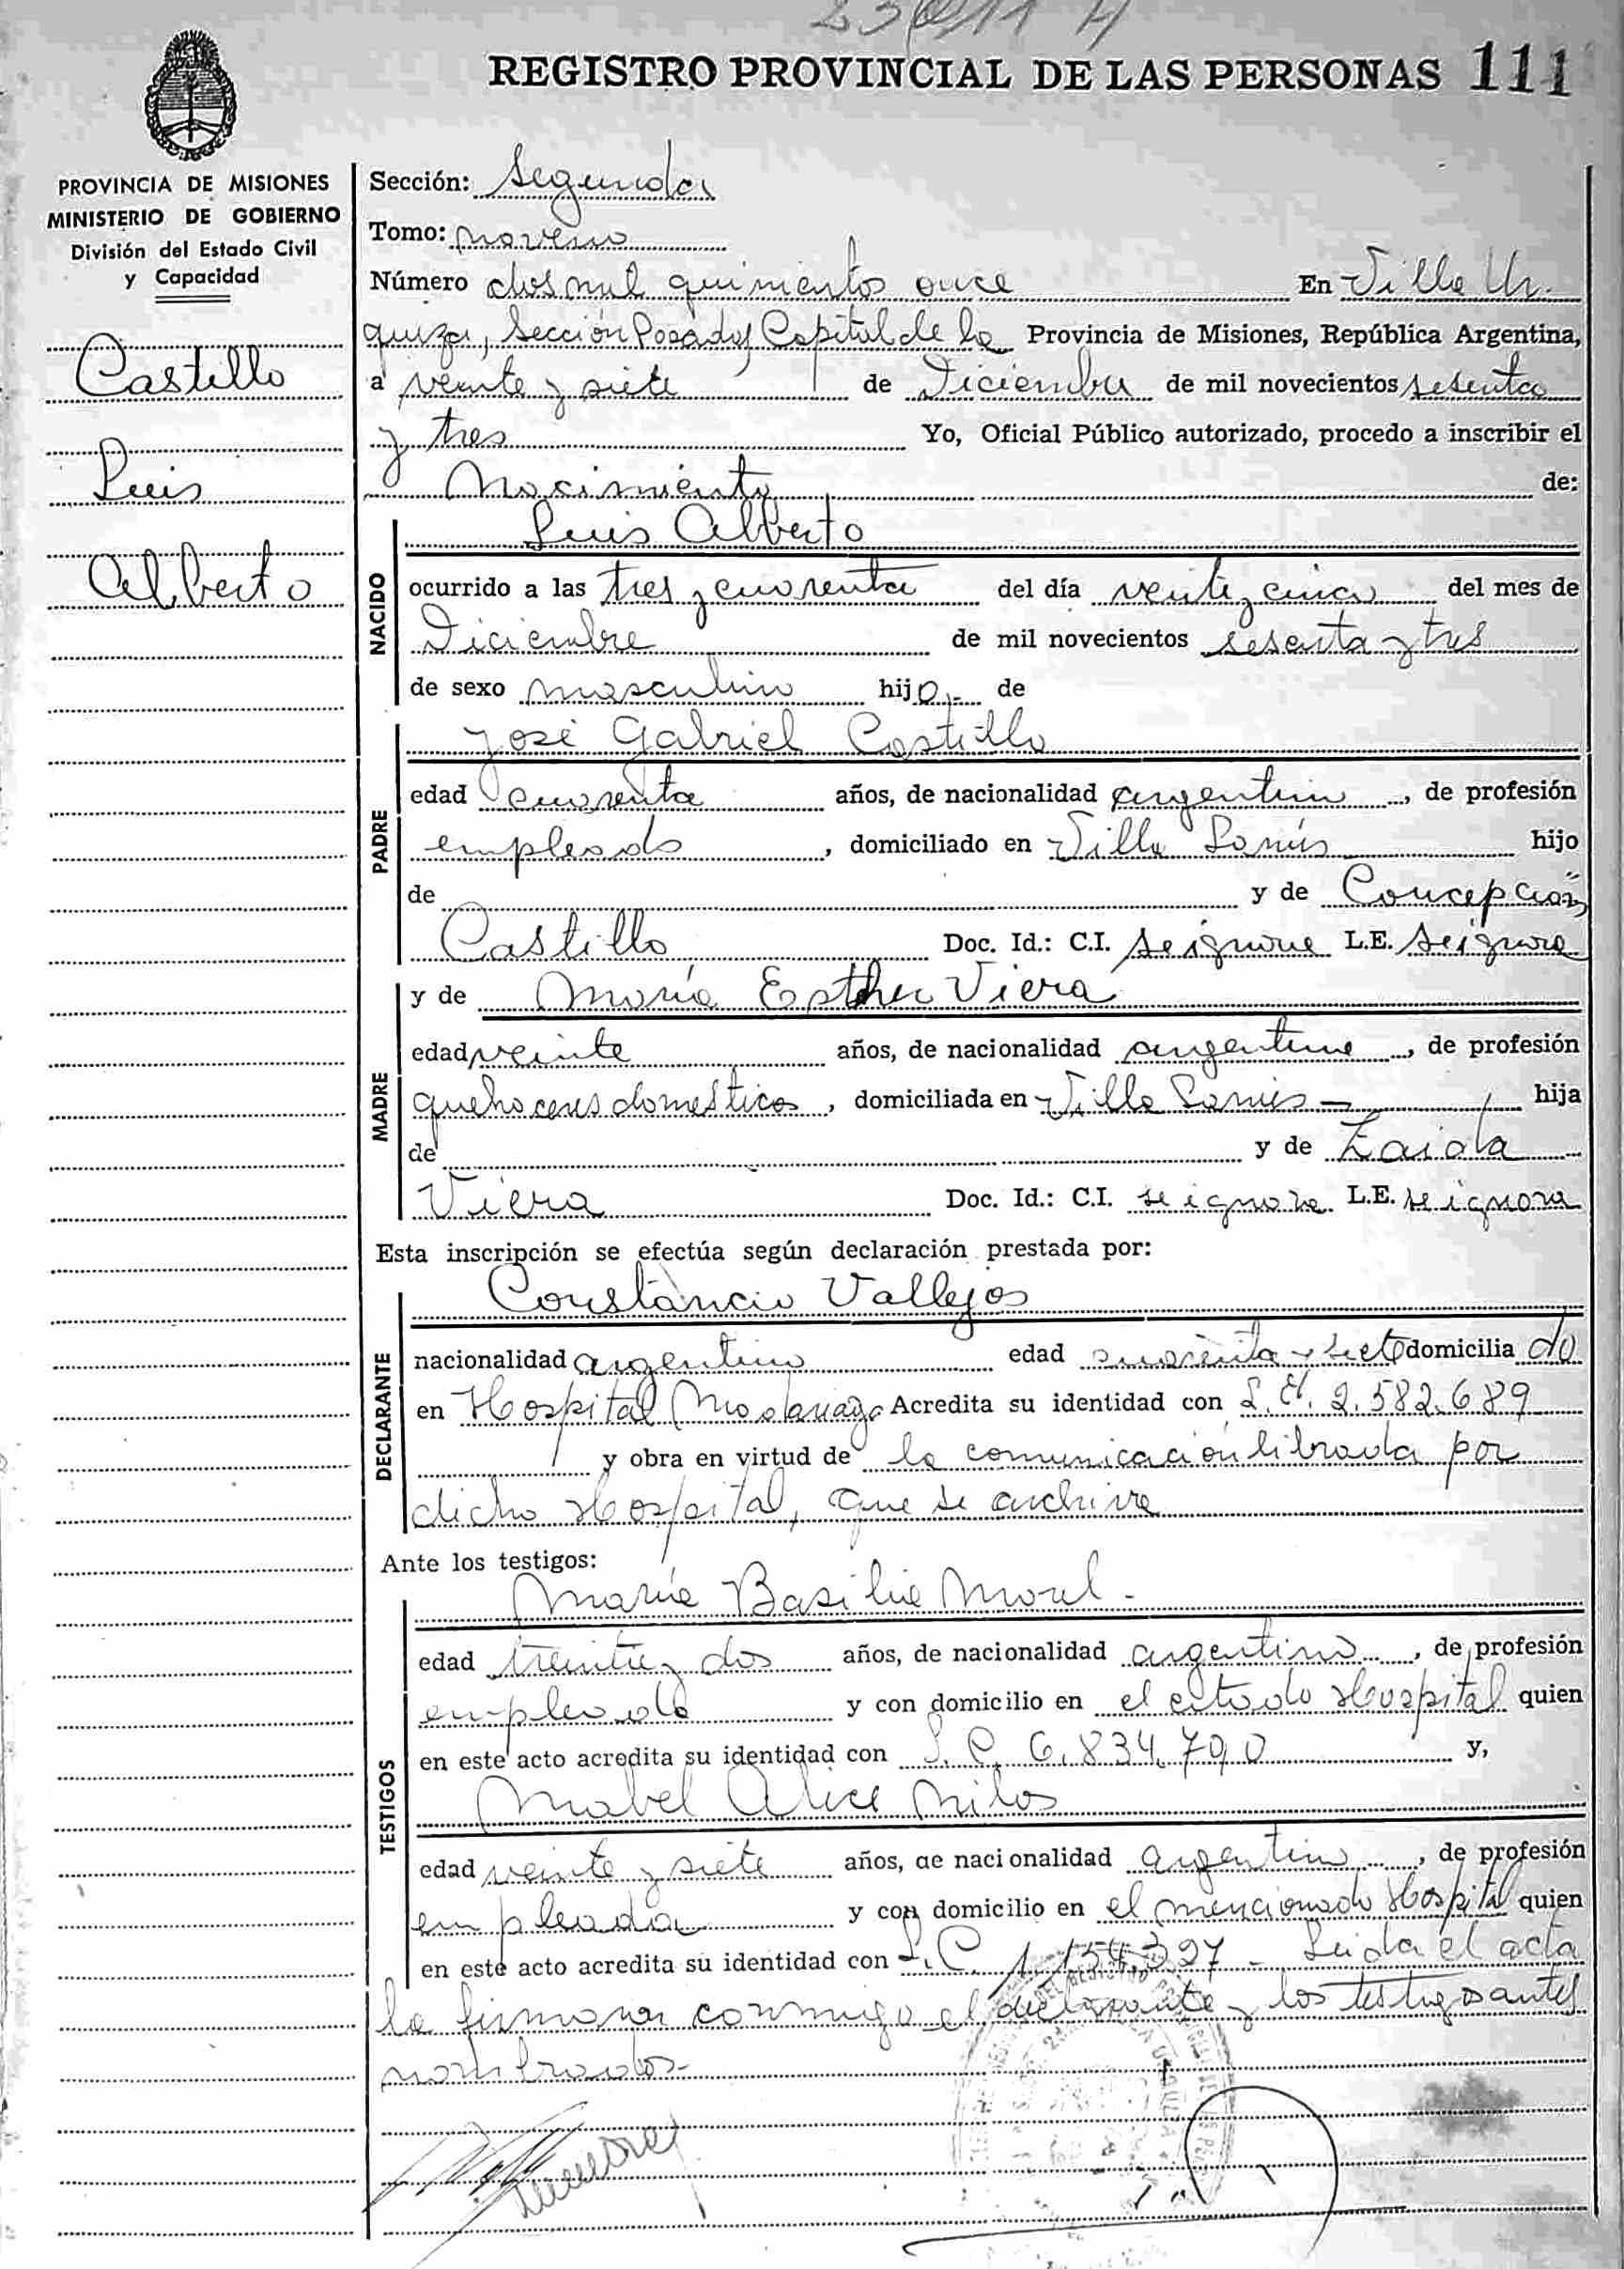 REGISTRO PROVINCIAL DE LAS PERSONAS 111
PROVINCIA DE MISIONES
MINISTERIO DE GOBIERNO
División del Estado Civil
y Capacidad
Castillo
Luis
Alberto
Sección: Segunda
Tomo: noveno
Número dos mil quinientos once En Villa Ur-
quiza, Sección Posadas Capital de la Provincia de Misiones, República Argentina,
a veinte y siete de Diciembre de mil novecientos sesenta
y tres Yo, Oficial Público autorizado, procedo a inscribir el
Nacimiento de:
Luis Alberto
NACIDO
ocurrido a las tres y cuarenta del día veinte y cinco del mes de
Diciembre de mil novecientos sesenta y tres
de sexo masculino hijo de
José Gabriel Castillo
PADRE
edad cuarenta años, de nacionalidad argentino, de profesión
empleado, domiciliado en Villa Lanús hijo
de y de Concepción
Castillo Doc. Id.: C.I. se ignora L.E. se ignora
y de María Esther Viera
MADRE
edad veinte años, de nacionalidad argentina, de profesión
quehaceres domesticos, domiciliada en Villa Lanús - hija
de y de Zaida
Viera Doc. Id.: C.I. se ignora L.E. se ignora
Esta inscripción se efectúa según declaración prestada por:
Constancio Vallejos
DECLARANTE
nacionalidad argentino edad cuarenta y siete domiciliado
en Hospital Madariaga Acredita su identidad con L.E. 2.582.689
y obra en virtud de la comunicación librada por
dicho Hospital, que se archiva
Ante los testigos:
María Basilia Morel -
TESTIGOS
edad treinta y dos años, de nacionalidad argentina, de profesión
empleada y con domicilio en el citado Hospital quien
en este acto acredita su identidad con L.C. 6.834.790 y,
Mabel Alice
edad veinte y siete años, de nacionalidad argentina, de profesión
empleada y con domicilio en el mencionado Hospital quien
en este acto acredita su identidad con L.C. - Leida el acta
la firman conmigo el declarante y los testigos antes
nombrados -